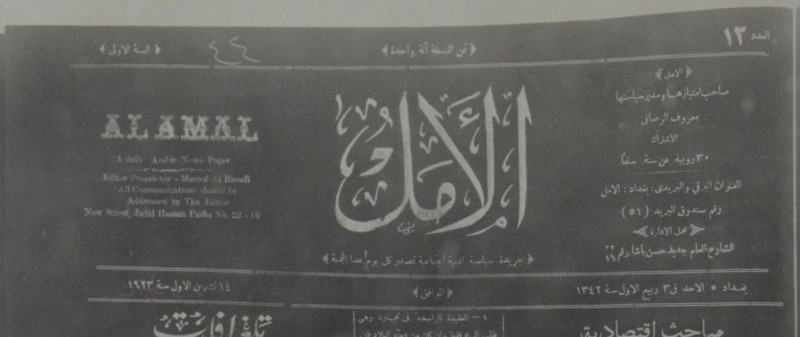 العدد ١٢
﴿ ثمن النسخة آنة واحدة ﴾
﴿ السنة الاولى ﴾
٤٤
﴿ الامل ﴾
صاحب امتيازها ومدير سياستها
معروف الرصافي
الاشتراك
٣٠ روبية عن سنة سلفاً
العنوان البرقي والبريدي : بغداد : الامل
رقم صندوق البريد ( ٥١ )
﴿ محل الادارة ﴾
الشارع العام جديد حسن باشا رقم ٢٢ ١٦
الأمل
﴿ جريدة سياسية ادبية اجتماعية تصدر كل يوم عدا الجمعة ﴾
AL AMAL
A daily Arabic News Paper
Editor Proprietor - Maroof Al Rissafi
All Communications should be
Addressed to The Editor
New Street, Jadid Hassan Pasha No. 22 - 16
بغداد * الاحد في ٣ ربيع الاول سنة ١٣٤٢
﴿ الموافق ﴾
١٤ تشرين الاول سنة ١٩٢٣
مباحث اقتصادية
١ -- العقيدة الراسخة في تجارنا وهي